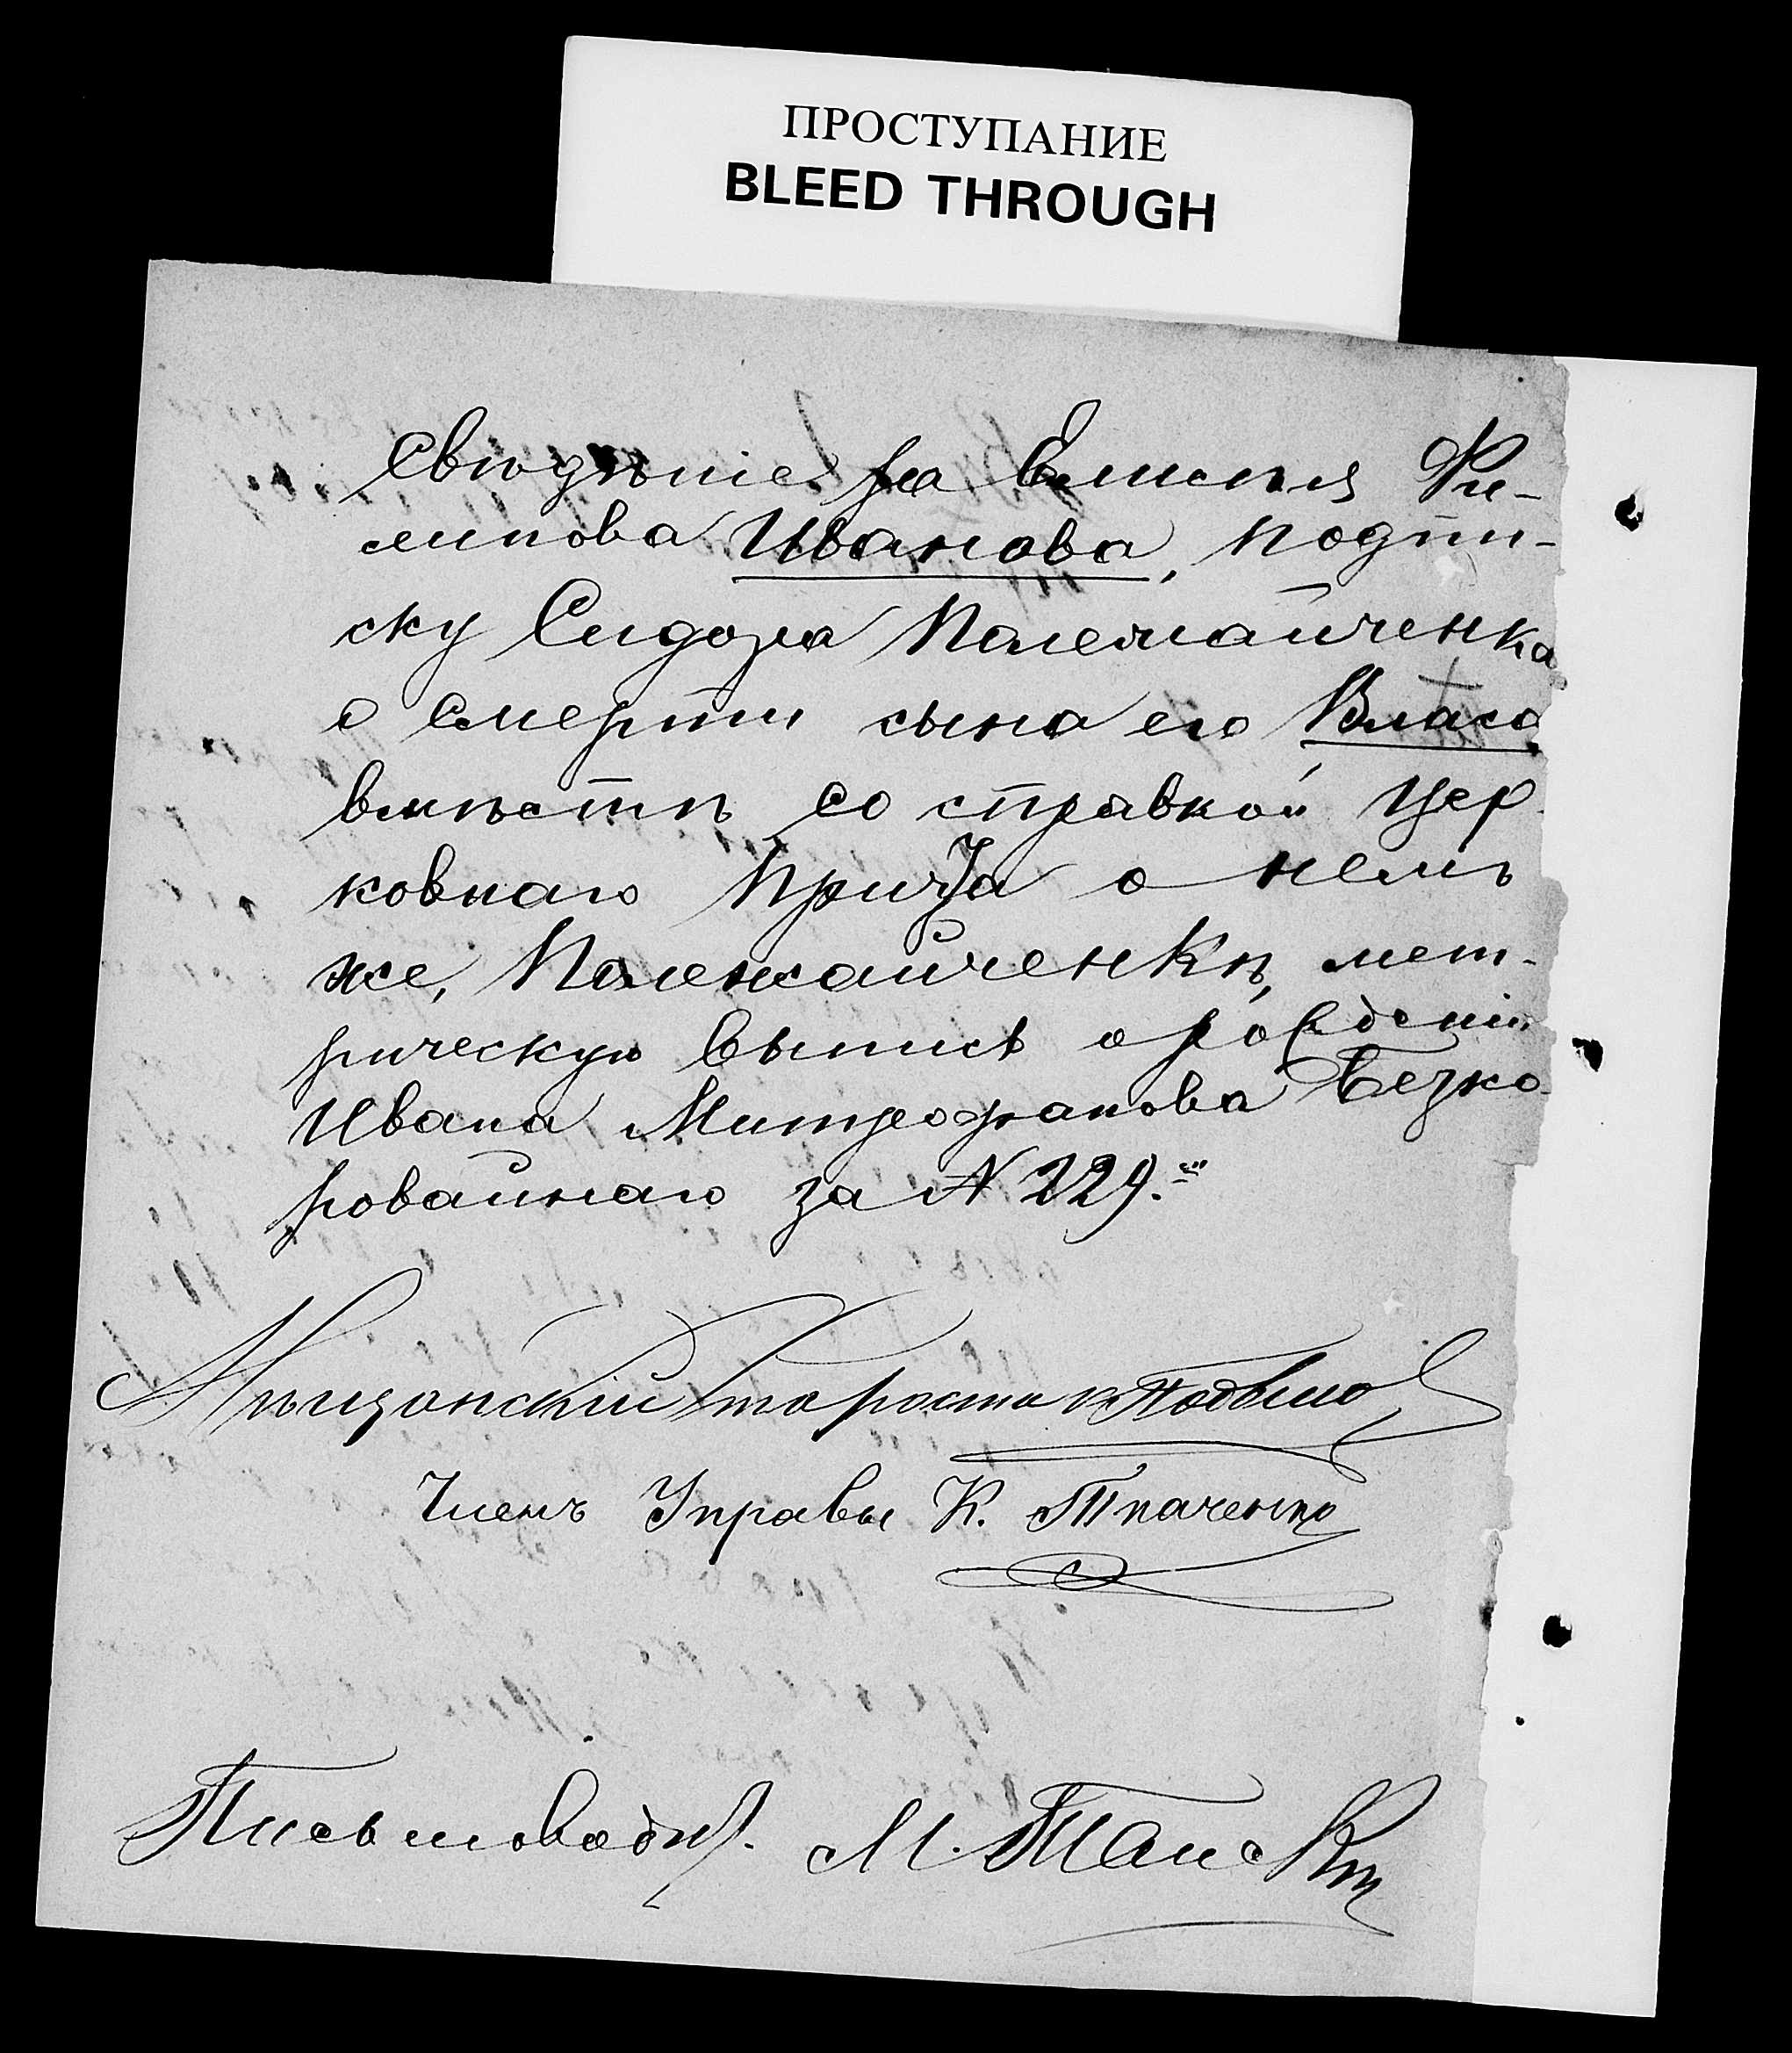 ПРОСТУПАНИЕ
BLEED THROUGH
Свидѣніе на Фи-
липова Иванова, подпи-
ску Сидора Палежайченка
о смерти сына его Власа
вмѣстѣ со справкой Цер-
ковнаго Причта о немъ
же, Палежайченкѣ, мет-
рическую выпись о рожденіи
Ивана Митрофанова Безко-
ровайнаго за № 229.
Мѣщанскій Староста
Членъ Управы К. Ткаченко
Письмовод. М.